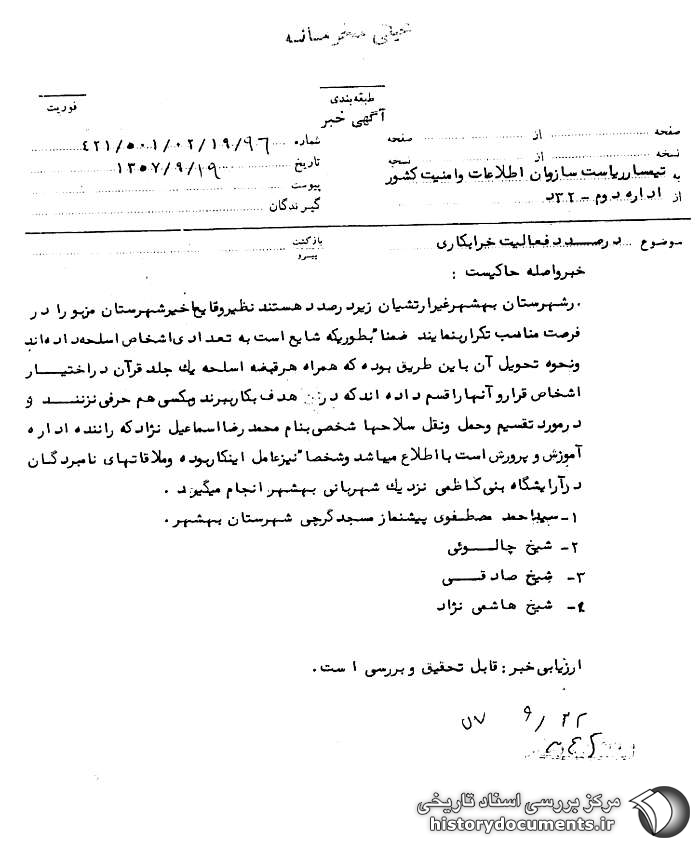 خیلی محرمانه
طبقه‌بندی
فوریت
آگهی خبر
صفحه از صفحه
شماره ۴۲۱/۵۰۱/۰۲/۱۹/۹۶
نسخه از نسخه
تاریخ ۱۳۵۷/۹/۱۹
به تیمسار ریاست سازمان اطلاعات و امنیت کشور
پیوست
از اداره دوم - ۳۲د
گیرندگان
موضوع درصدد فعالیت خرابکاری
بازگشت
پیرو
خبر واصله حاکیست :
. رشهرستان بهشهر غیر ارتشیان زیر درصدد هستند نظیر وقایع اخیر شهرستان مزبور را در
فرصت مناسب تکرار بنمایند ضمنا" بطوریکه شایع است به تعدادی اشخاص اسلحه داده اند
ونحوه تحویل آن باین طریق بوده که همراه هر قبضه اسلحه یک جلد قرآن در اختیار
اشخاص قرار و آنها را قسم داده اند که در هدف بکار ببرند وبکسی هم حرفی نزنند و
در مورد تقسیم وحمل ونقل سلاحها شخصی بنام محمد رضا اسماعیل نژاد که راننده اداره
آموزش و پرورش است با اطلاع میباشد وشخصا" نیز عامل اینکار بوده وملاقاتهای نامبردگان
در آرایشگاه بنی کاظمی نزدیک شهربانی بهشهر انجام میگیرد .
۱- سید احمد مصطفوی پیشنماز مسجد گرجی شهرستان بهشهر .
۲- شیخ چالوئی
۳- شیخ صادقی
۴- شیخ هاشمی نژاد
ارزیابی خبر : قابل تحقیق و بررسی است .
۵۷ ۹/۲۲
مرکز بررسی اسناد تاریخی
historydocuments.ir